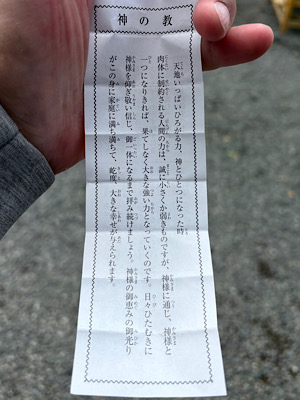 神の教
天地いっぱいひろがる力、神とひとつになった時
肉体に制約される人間の力は、誠に小さくか弱きものですが、神様に通じ、神様と
一つになりきれば、果てしなく大きな強い力となっていくのです。日々ひたむきに
神様を仰ぎ敬い信じ、御一体になるまで拝み続けましょう。神様の御恵みの御光り
がこの身に家庭に満ち満ちて、屹度、大きな幸せが与えられます。